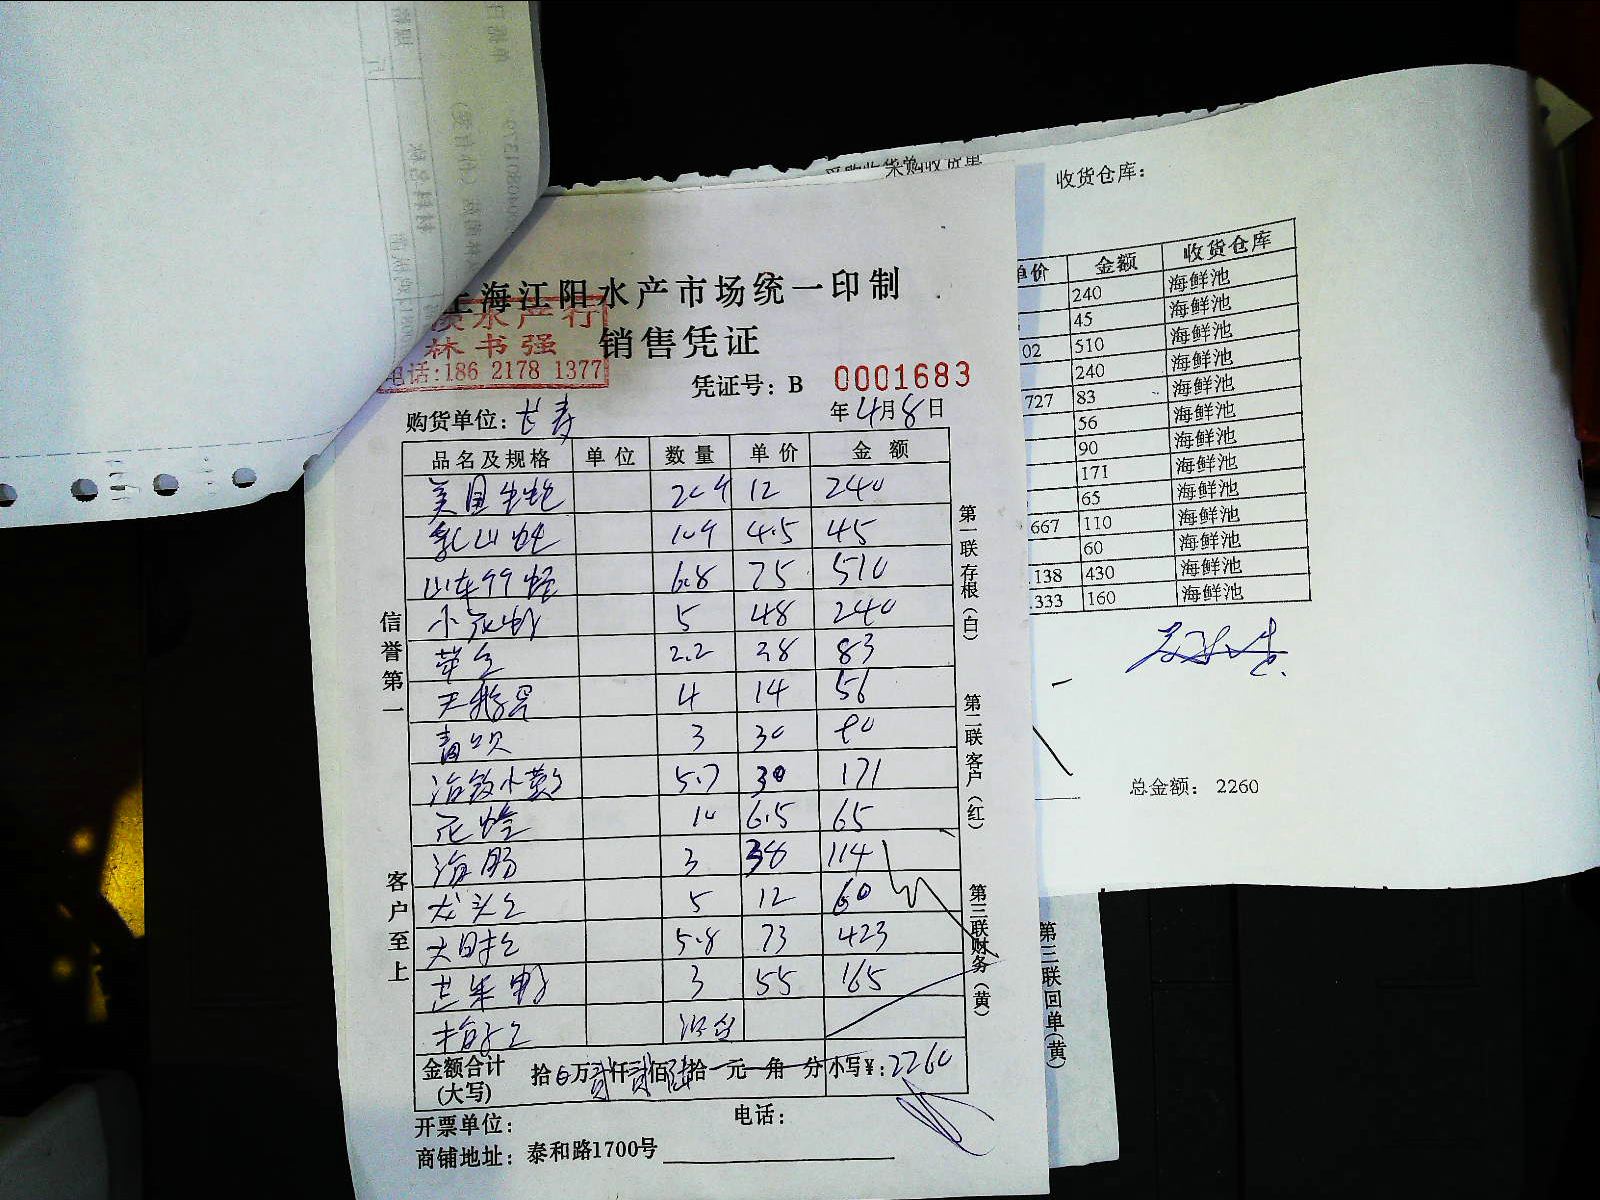 收货仓库：
单价 金额 收货仓库
240 海鲜池
45 海鲜池
02 510 海鲜池
240 海鲜池
727 83 海鲜池
56 海鲜池
90 海鲜池
171 海鲜池
65 海鲜池
667 110 海鲜池
60 海鲜池
138 430 海鲜池
333 160 海鲜池
总金额：2260
上海江阳水产市场统一印制
水产行
林书强
电话:186 2178 1377
销售凭证
凭证号：B 0001683
购货单位：长寿 年4月8日
品名及规格 单位 数量 单价 金额
美国生蚝 20个 12 240
乳山蚝 10个 4.5 45
山东竹蛏 6.8 75 510
小花螺 5 48 240
2.2 38 83
天鹅蛋 4 14 56
青口贝 3 30 90
5.7 30 171
花蛤 10 6.5 65
海肠 3 38 114
龙头 5 12 60
5.8 73 423
芒果螺 3 55 165
金额合计
(大写) 拾 万贰仟贰佰陆拾 元 角 分 小写￥：2260
开票单位： 电话：
商铺地址：泰和路1700号
信誉第一
客户至上
第一联 存根（白）
第二联 客户（红）
第三联 财务（黄）
第三联 回单（黄）